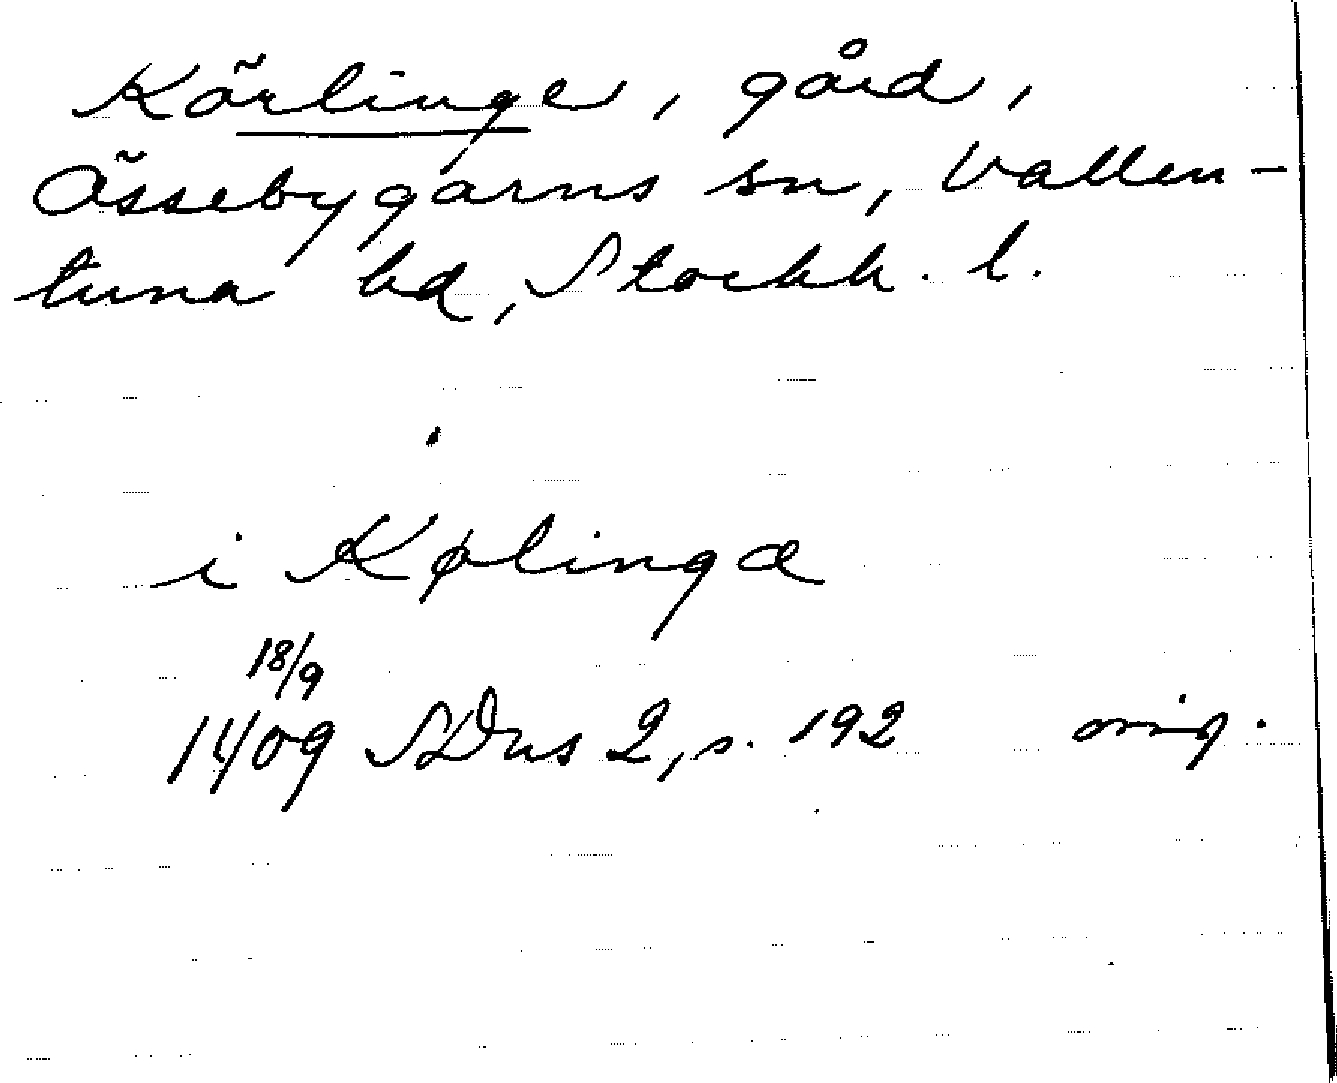 Körlinge, gård,
Össebygarns sn, Vallen-
tuna hd, Stockh. l.
i Kølingæ
18/9
1409 SDns 2, s. 192 orig.